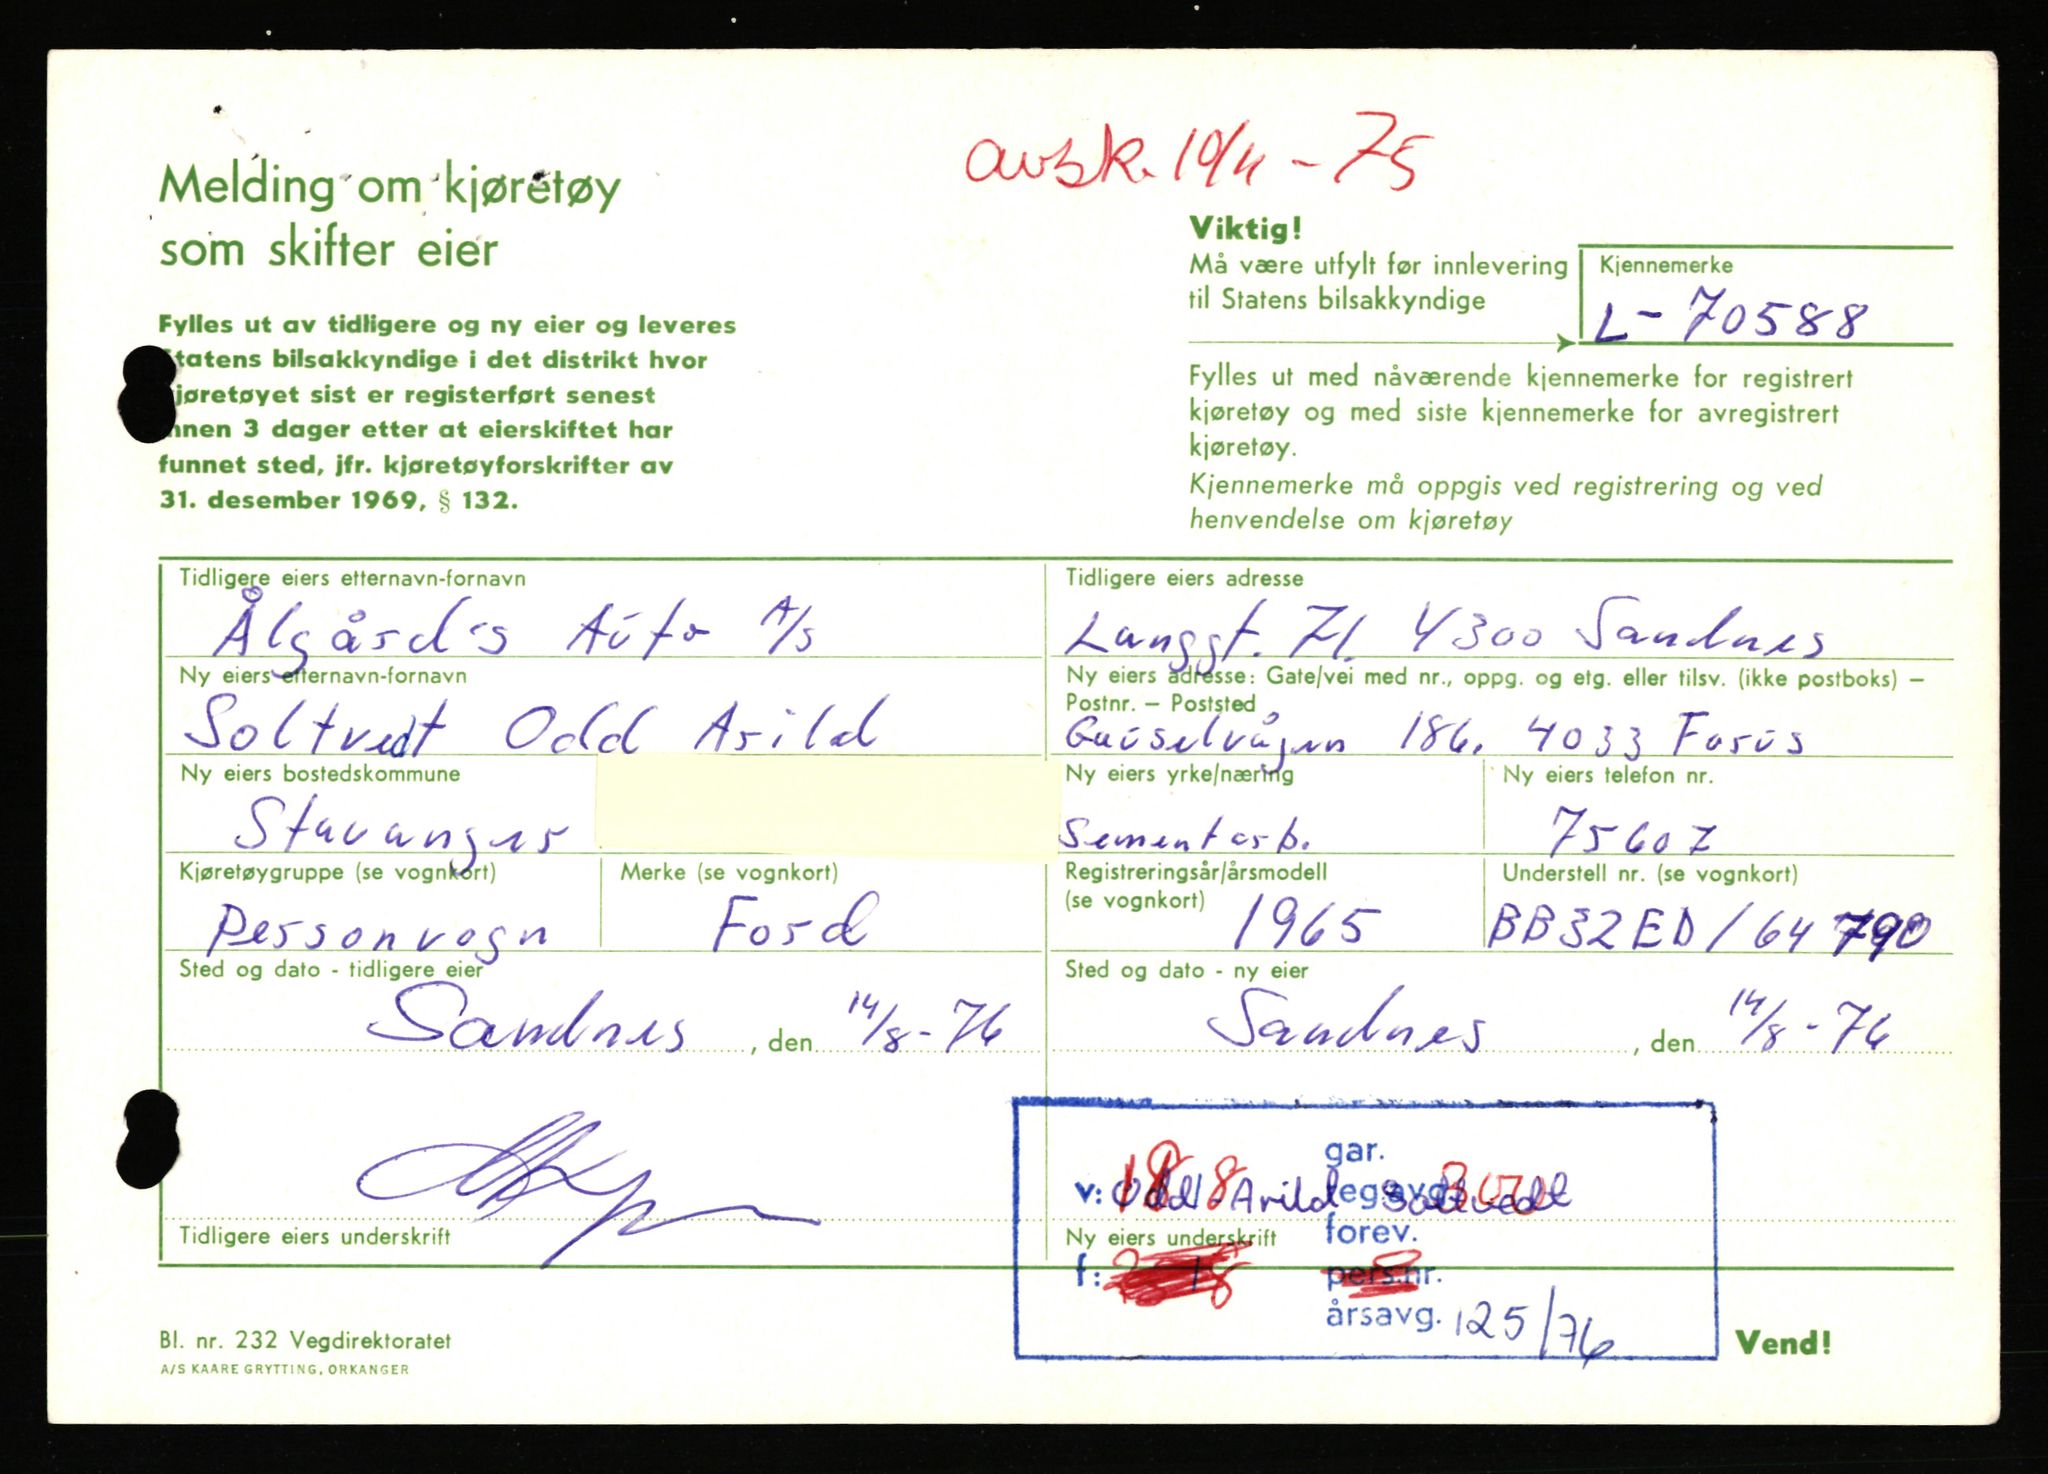 avsk. 10/11 - 75
Melding om kjøretøy
som skifter eier
Fylles ut av tidligere og ny eier og leveres
Statens bilsakkyndige i det distrikt hvor
kjøretøyet sist er registerført senest
innen 3 dager etter at eierskiftet har
funnet sted, jfr. kjøretøyforskrifter av
31. desember 1969, § 132.
Viktig!
Må være utfylt før innlevering
til Statens bilsakkyndige
Kjennemerke
L-70588
Fylles ut med nåværende kjennemerke for registrert
kjøretøy og med siste kjennemerke for avregistrert
kjøretøy.
Kjennemerke må oppgis ved registrering og ved
henvendelse om kjøretøy
Tidligere eiers etternavn-fornavn
Ålgård's Auto A/S
Tidligere eiers adresse
Langgt. 71. 4300 Sandnes
Ny eiers etternavn-fornavn
Soltvedt Odd Arild
Ny eiers adresse: Gate/vei med nr., oppg. og etg. eller tilsv. (ikke postboks) –
Postnr. – Poststed
Gauselvågen 186. 4033 Forus
Ny eiers bostedskommune
Stavanger
Ny eiers yrke/næring
Sementarb.
Ny eiers telefon nr.
75607
Kjøretøygruppe (se vognkort)
Personvogn
Merke (se vognkort)
Ford
Registreringsår/årsmodell
(se vognkort)
1965
Understell nr. (se vognkort)
BB32ED/64790
Sted og dato - tidligere eier
Sandnes, den 14/8-76
Sted og dato - ny eier
Sandnes, den 14/8-76
Tidligere eiers underskrift
gar.
v: 18 8 legavg.
Odd Arild Soltvedt
forev.
Ny eiers underskrift
f:
pers.nr.
årsavg. 125/76
Bl. nr. 232 Vegdirektoratet
A/S KAARE GRYTTING, ORKANGER
Vend!